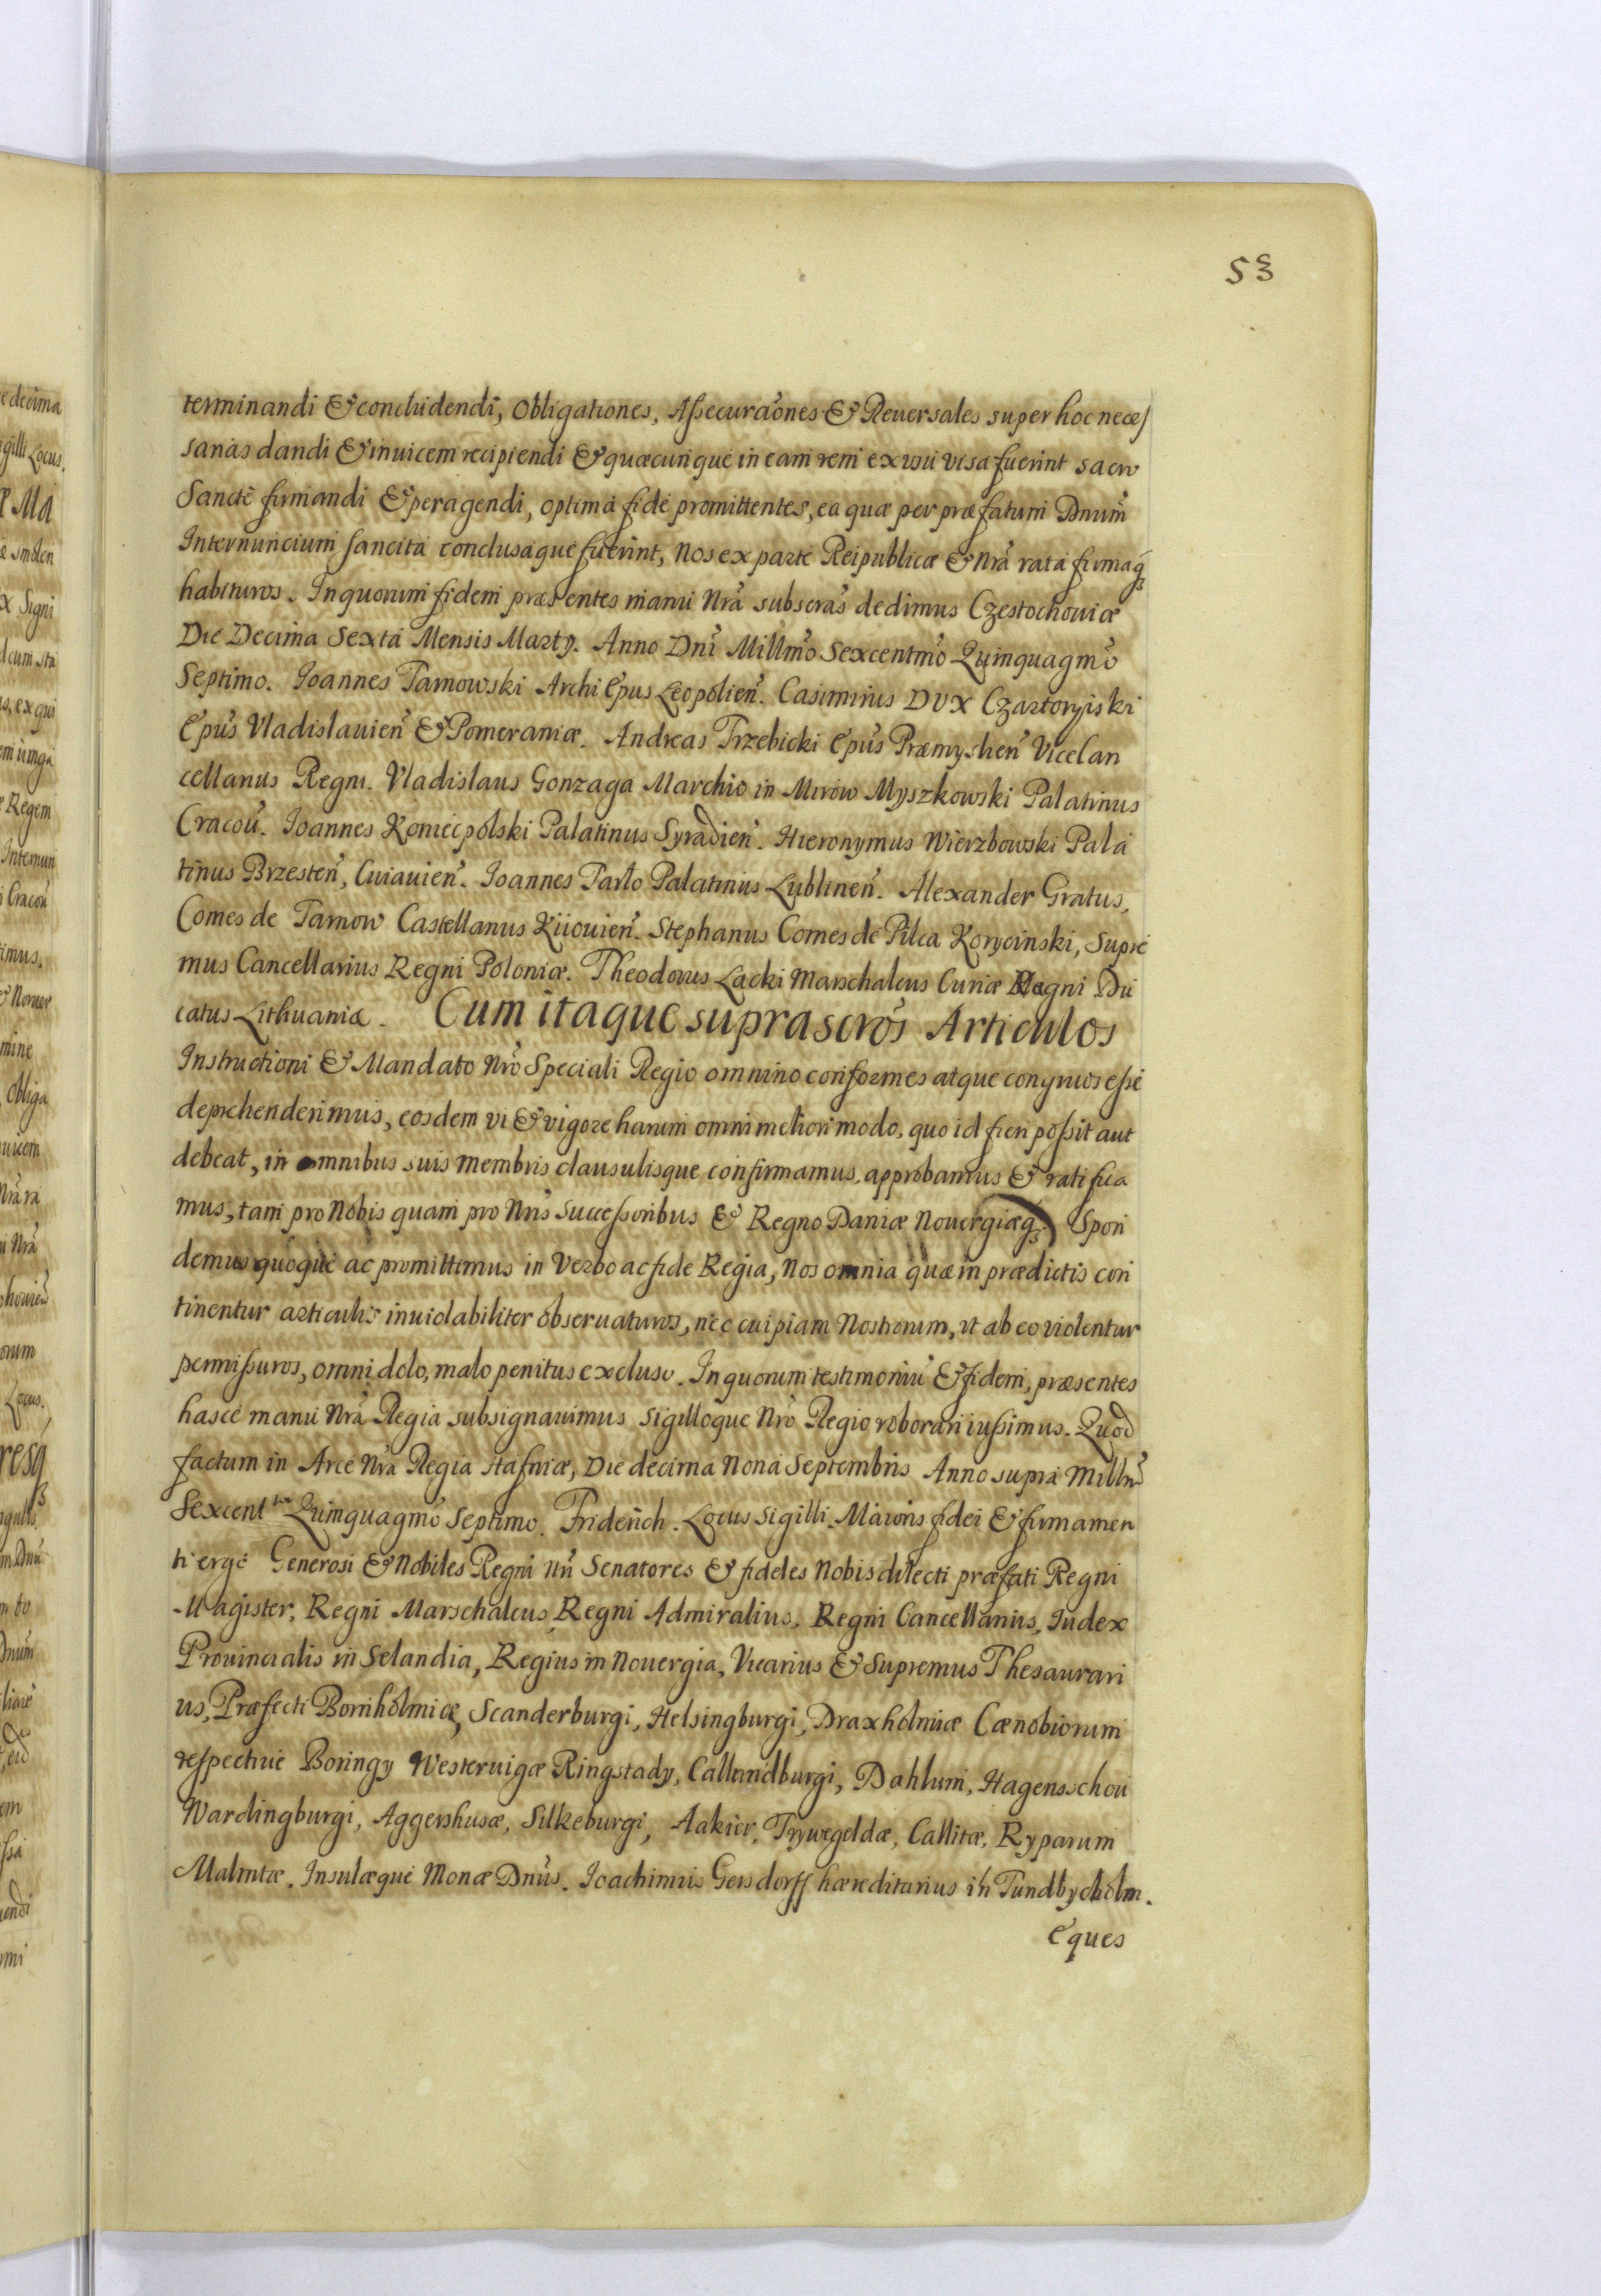 53
terminandi & concludendi, Obligationes, Assecuraões & Reuersales super hoc neces
sarias dandi & inuicem recipiendi & quæcunque in eam rem ex usu visa fuerint sacro
Sancte firmandi & peragendi, optima fide promittentes, ea quæ per præfatum Dnum̃
Internuncium sancita conclusaque fuerint, Nos ex parte Reipublicæ & Nrã rata firmaq;
habituros. In quorum fidem præsentes manu Nrã subscrãs dedimus Czestochouiæ
Die Decima Sexta Mensis Marty. Anno Dnĩ Millmõ Sexcentmõ Quinquagmõ
Septimo. Ioannes Tarnowski Archi Epus Leopolien̄. Casimirus DUX Czartoryiski
Epũs Vladislauien̄ & Pomeraniæ. Andreas Trzebicki Epũs Præmyslien̄ Vicecan
cellarius Regni. Vladislaus Gonzaga Marchio in Mirow Myszkowski Palatinus
Cracou̅. Ioannes Koniecpolski Palatinus Syradien̄. Hieronymus Wierzbowski Pala
tinus Brzesten̄, Cuiauien̄. Ioannes Tarlo Palatinus Lublinen̄. Alexander Gratus,
Comes de Tarnow Castellanus Kiiouien̄. Stephanus Comes de Pilca Korycinski, Supre
mus Cancellarius Regni Poloniæ. Theodorus Lacki Marschalcus Curiæ Magni Du
catus Lithuaniæ. Cum itaque suprascrõs Articulos
Instructioni & Mandato Nrõ Speciali Regio omnino conformes atque congruos esse
deprehenderimus, eosdem vi & vigore harum omni meliori modo, quo id fieri possit aut
debeat, in omnibus suis membris clausulisque confirmamus, approbamus & ratifica
mus, tam pro Nobis quam pro Nrĩs Successoribus & Regno Daniæ Nouergiæq; Spon
demus quoque ac promittimus in Verbo ac fide Regia, Nos omnia quæ in prædictis con
tinentur articulis inuiolabiliter obseruaturos, nec cuipiam Nostrorum, ut ab eo violentur
permissuros, omni dolo, malo penitus excluso. In quorum testimoniũ & fidem, præsentes
hasce manu Nrã Regia subsignauimus Sigilloque Nrõ Regio roborari iussimus. Quod
factum in Arce Nrã Regia Hafniæ, Die decima Nona Septembris Anno supra Millm̃
Sexcent^mo Quinquagmõ Septimo. Friderich. Locus Sigilli. Maioris fidei & firmamen
ti ergo Generosi & Nobiles Regni Nrĩ Senatores & fideles Nobis dilecti præfati Regni
Magister, Regni Marschalcus, Regni Admiralius, Regni Cancellarius, Iudex
Prouincialis in Selandia, Regius in Nouergia, Vicarius & Supremus Thesaurari
us, Præfecti Bornholmiæ, Scanderburgi, Helsingburgi, Draxholmiæ Cænobiorum
respectiue Boringy Westeruigæ Ringstady, Callundburgi, Dahlum, Hagensschou
Wardingburgi, Aggershusæ, Silkeburgi, Aakier, Trywegeldæ, Callitæ, Ryparum
Malmtæ. Insulæque Monæ Dnũs. Ioachimus Gersdorff hæreditarius in Tundbycholm.
Eques